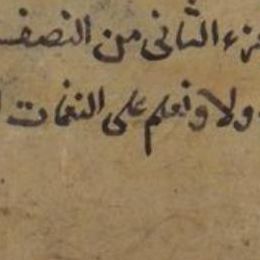 جزء الثانى من النصف
ولا ونعلم على النغمات